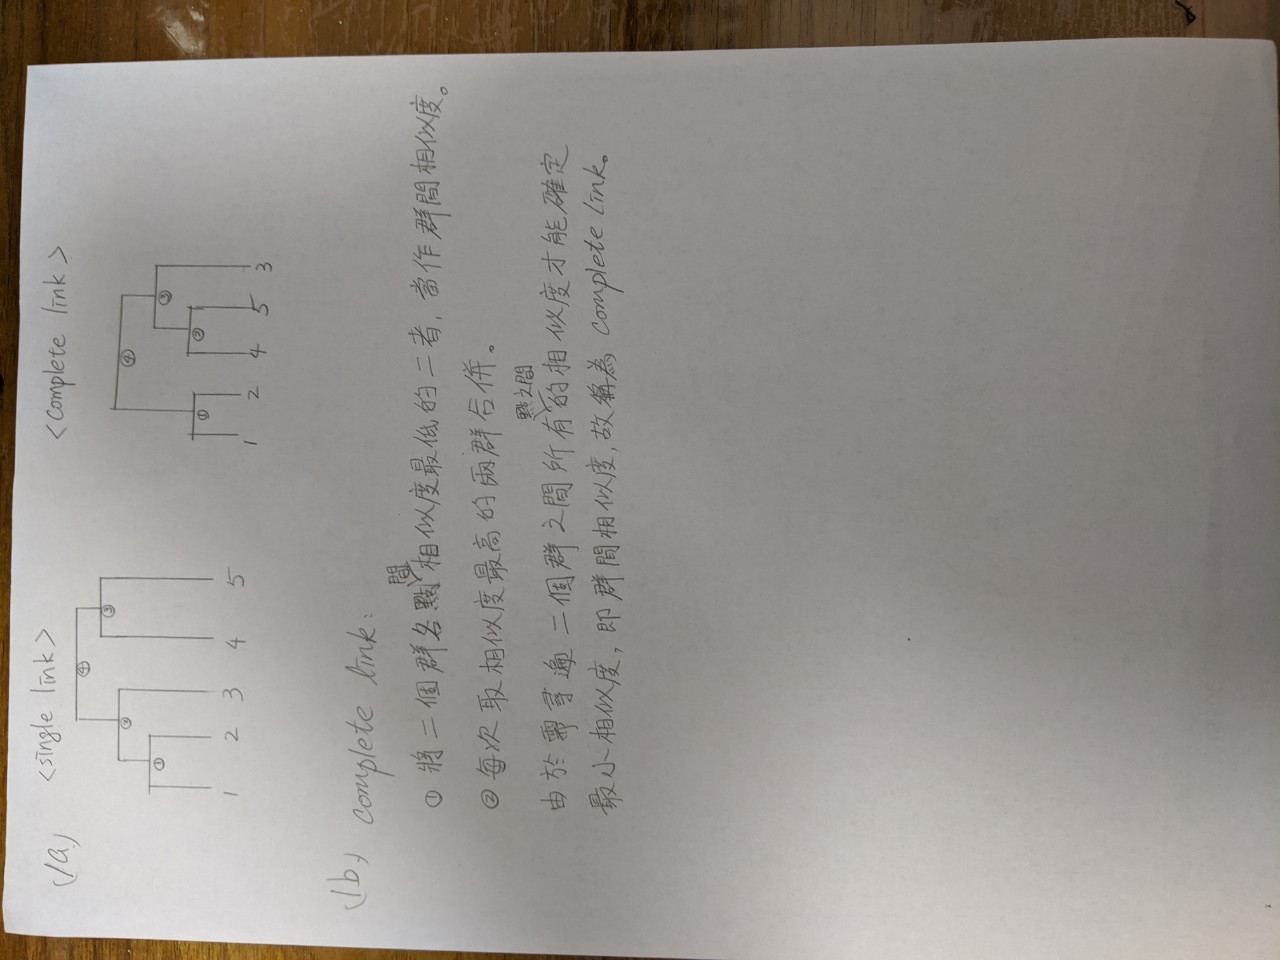 (1a)
<single link>
④
③
②
①
1 2 3 4 5
<complete link>
④
③
① ②
1 2 4 5 3
(1b) complete link:
① 將二個群各點間相似度最低的二者,當作群間相似度。
② 每次取相似度最高的兩群合併。
由於需尋遍二個群之間所有點之間的相似度才能確定
最小相似度,即群間相似度,故稱為 complete link。